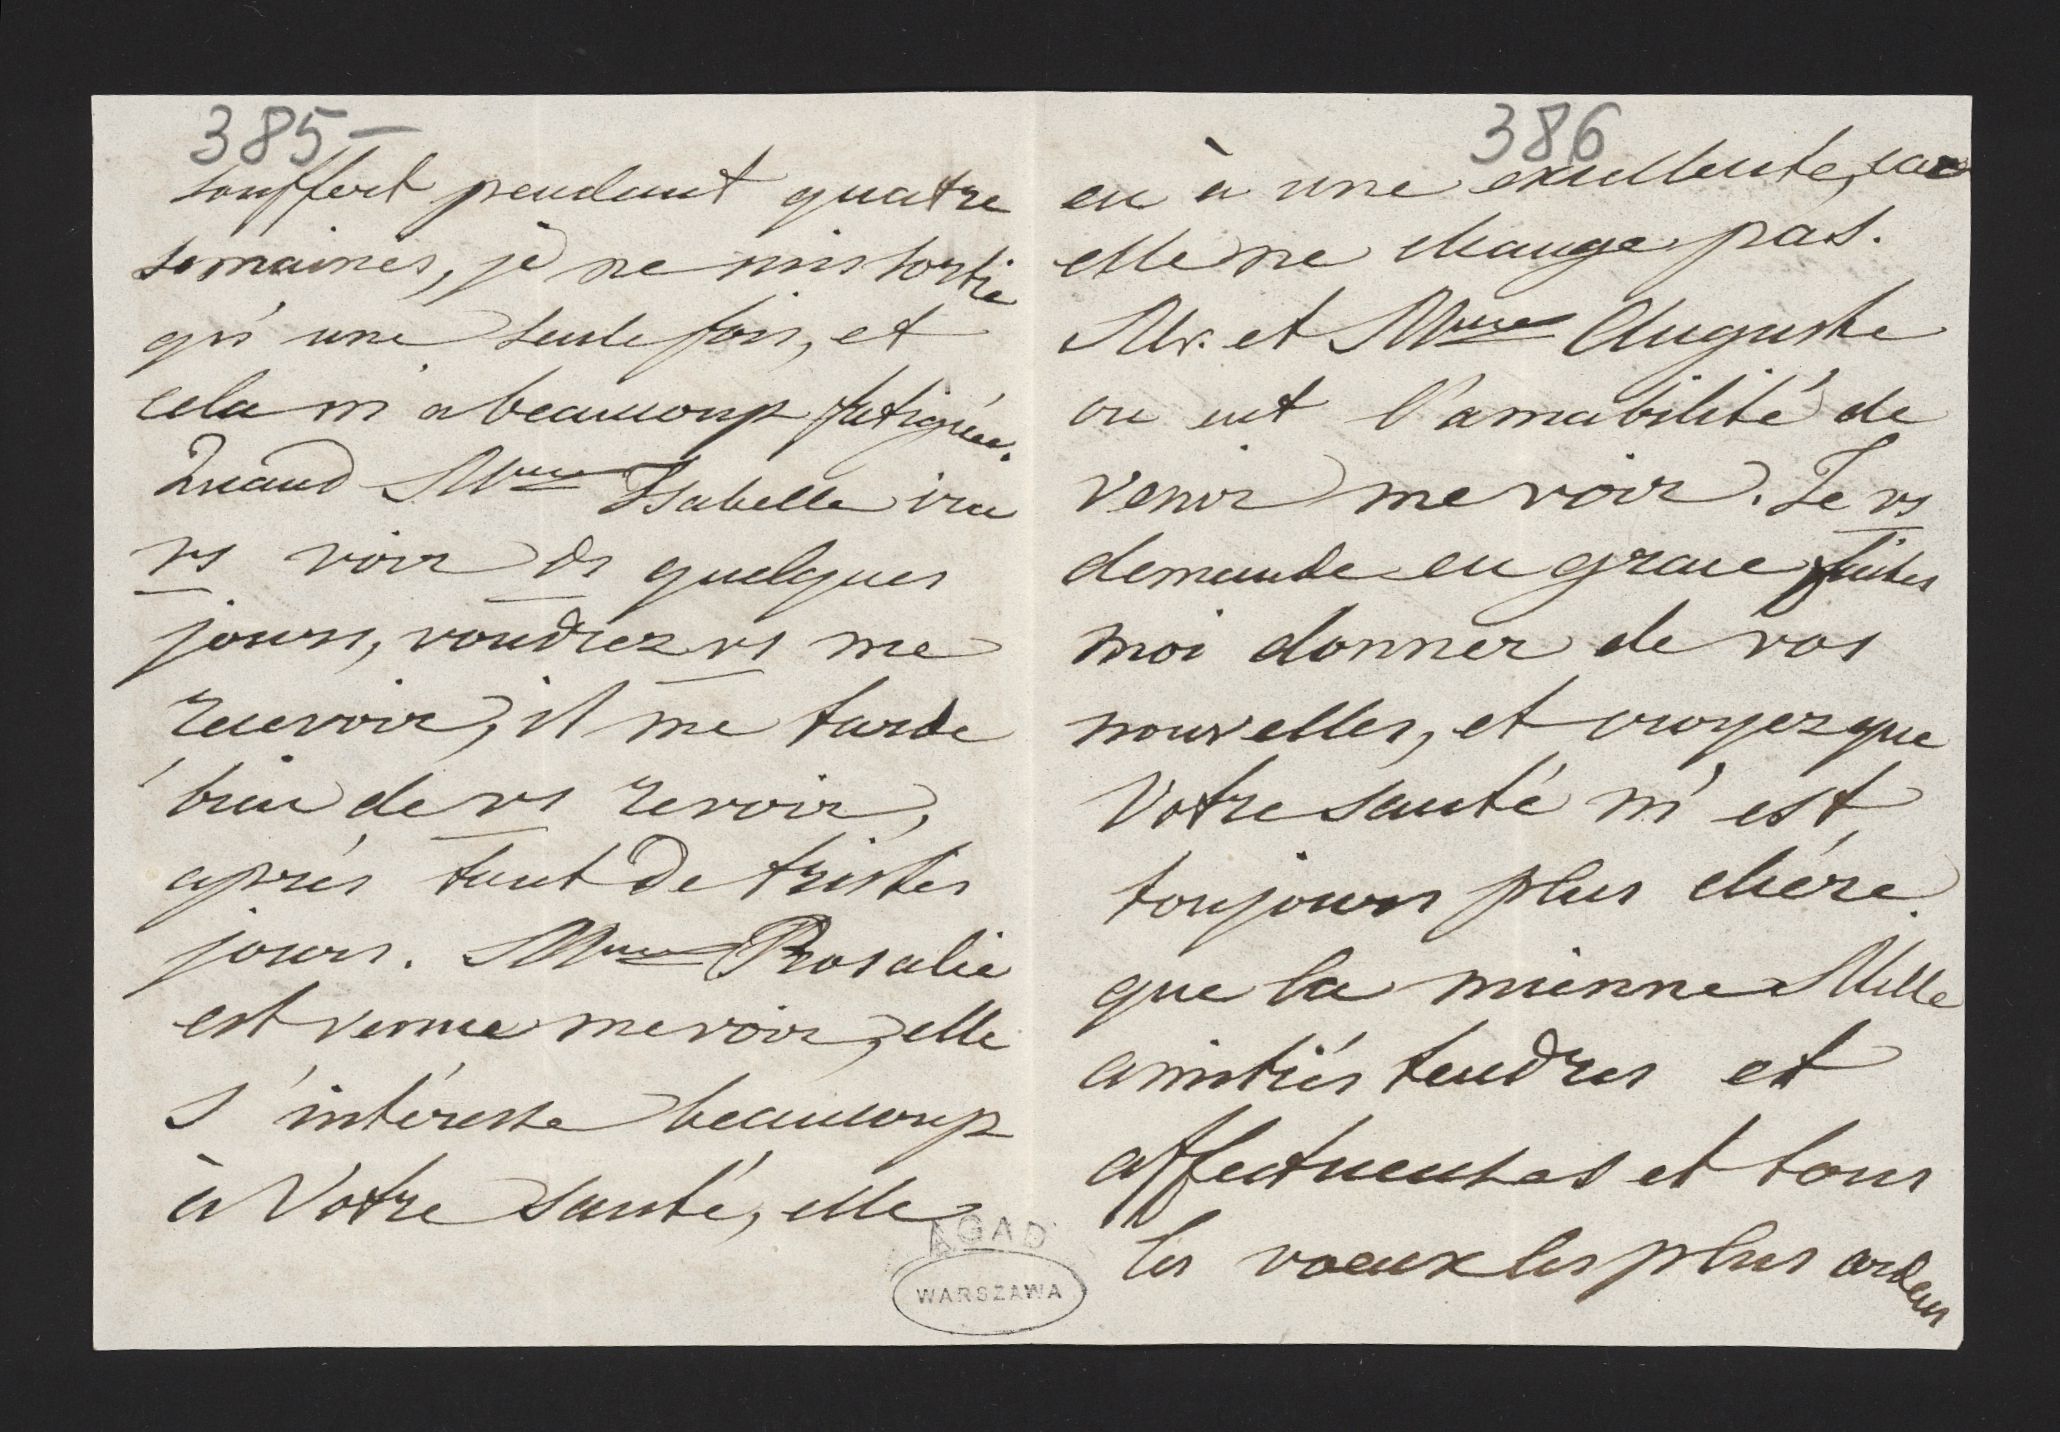 385-
souffert pendant quatre
semaines, je ne suis sortie
qu'une seule fois, et
cela m'a beaucoup fatiguée.
Quand Mme Isabelle ira
vs voir ds quelques
jours, voudrez vs me
recevoir, il me tarde
bien de vs revoir,
après tant de tristes
jours. Mme Rosalie
est venue me voir, elle
s'intéresse beaucoup
à Votre santé, elle
386
en a une excellente, car
elle ne change pas.
Mr. et Mme Auguste
on eut l'amabilité de
venir me voir. Je vs
demande en grace faites
moi donner de vos
nouvelles, et croyez que
Votre santé m'est
toujours plus chère
que la mienne Mille
amitiés tendres et
affectueuses et tous
les voeux les plus ardens
AGAD
WARSZAWA